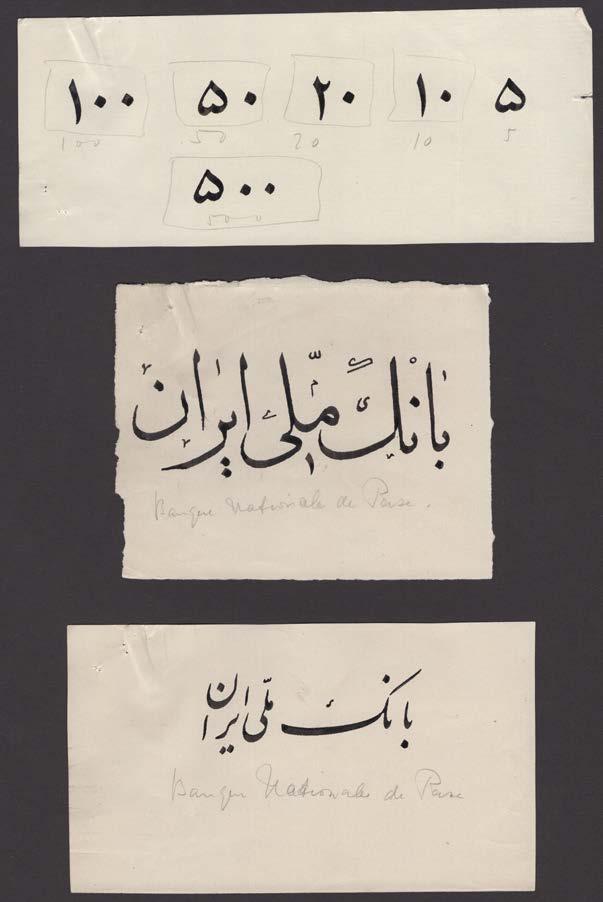 ۱۰۰ ۵۰ ۲۰ ۱۰ ۵
100 50 20 10 5
۵۰۰
500
بانک ملّی ایران
Banque Nationale de Perse.
بانک ملّی ایران
Banque Nationale de Perse